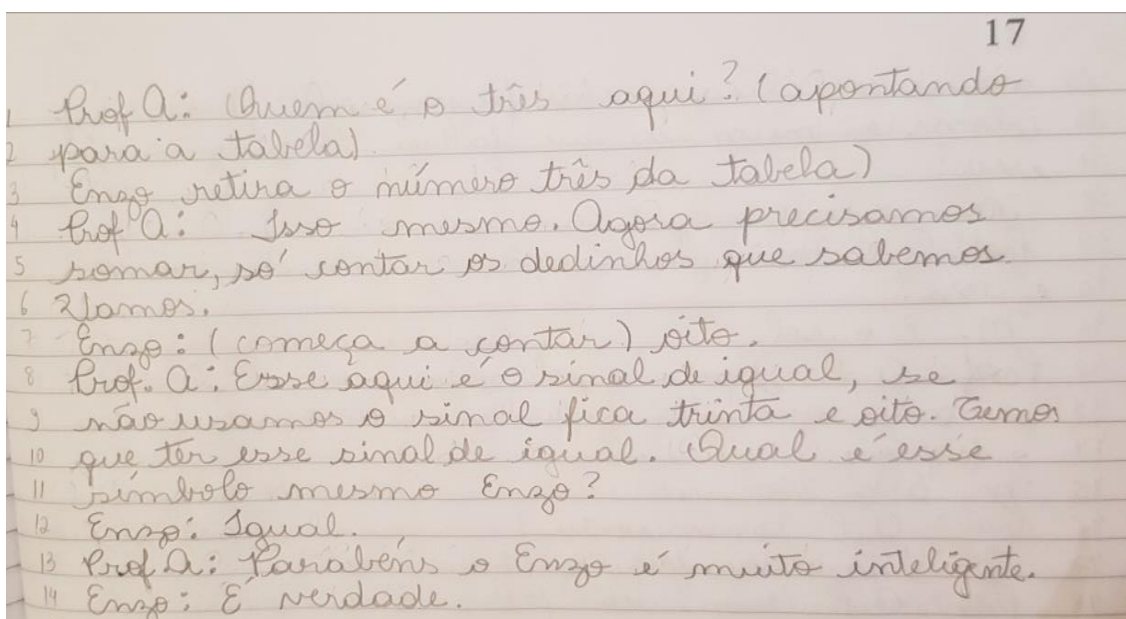 17
1 Prof A: Quem é o três aqui? (apontando
2 para a tabela)
3 Enzo retira o número três da tabela)
4 Prof A: Isso mesmo. Agora precisamos
5 somar, só contar os dedinhos que sabemos.
6 Vamos.
7 Enzo: (começa a contar) oito.
8 Prof. A: Esse aqui é o sinal de igual, se
9 não usamos o sinal fica trinta e oito. Temos
10 que ter esse sinal de igual. Qual é esse
11 símbolo mesmo Enzo?
12 Enzo: Igual.
13 Prof A: Parabéns o Enzo é muito inteligente.
14 Enzo: É verdade.